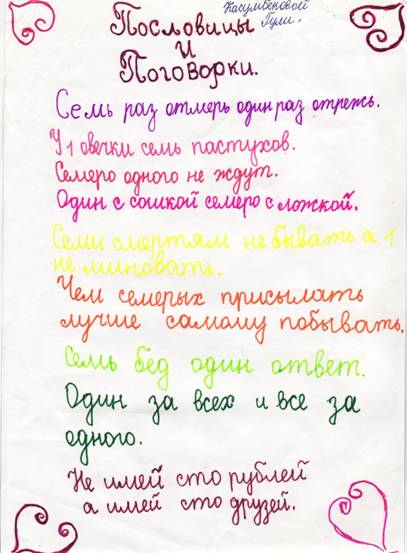 Пословицы
Касумбековой
Гули.
и
Поговорки.
Семь раз отмерь один раз отрежь.
У 1 овечки семь пастухов.
Семеро одного не ждут.
Один с сошкой семеро с ложкой.
Семи смертям не бывать а 1
не миновать.
Чем семерых присылать
лучше самому побывать.
Семь бед один ответ.
Один за всех и все за
одного.
Не имей сто рублей
а имей сто друзей.